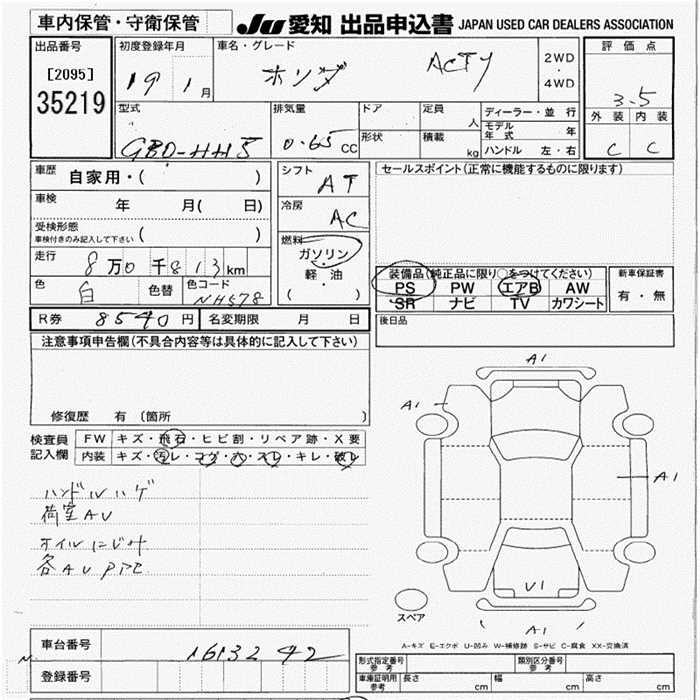 車内保管・守衛保管
JU 愛知 出品申込書 JAPAN USED CAR DEALERS ASSOCIATION
出品番号
[2095]
35219
初度登録年月
19 1月
車名・グレード
ホンダ ACTY
2WD
・
4WD
評価点
3.5
外装 内装
C C
型式
GBD-HH5
排気量
0.65 CC
ドア
形状
定員 人
積載 kg
ディーラー・並行
モデル年式 年
ハンドル 左・右
車歴 自家用・( )
車検 年 月( 日)
受検形態
車検付きのみ記入して下さい ( )
走行 8万0千813km
色 白 色替 色コード NH578
シフト AT
冷房 AC
燃料
ガソリン
・
軽・油
( )
セールスポイント(正常に機能するものに限ります)
装備品(純正品に限り○をつけてください)
PS PW エアB AW
SR ナビ TV カワシート
新車保証書
有・無
R券 8540円 名変期限 月 日
後日品
注意事項申告欄(不具合内容等は具体的に記入して下さい)
修復歴 有〔箇所 〕
検査員
記入欄
FW キズ・飛石・ヒビ割・リペア跡・X要
内装 キズ・汚レ・コゲ・穴・スレ・キレ・破レ
ハンドルハゲ
荷室AU
オイルにじみ
各AU
A1
A1
A1
V1
A1
スペア
A-キズ E-エクボ U-凹み W-補修跡 S-サビ C-腐食 XX-交換済
車台番号 1613242
登録番号
形式指定番号 参考
類別区分番号 参考
車庫証明用 参考 長さ cm 幅 cm 高さ cm